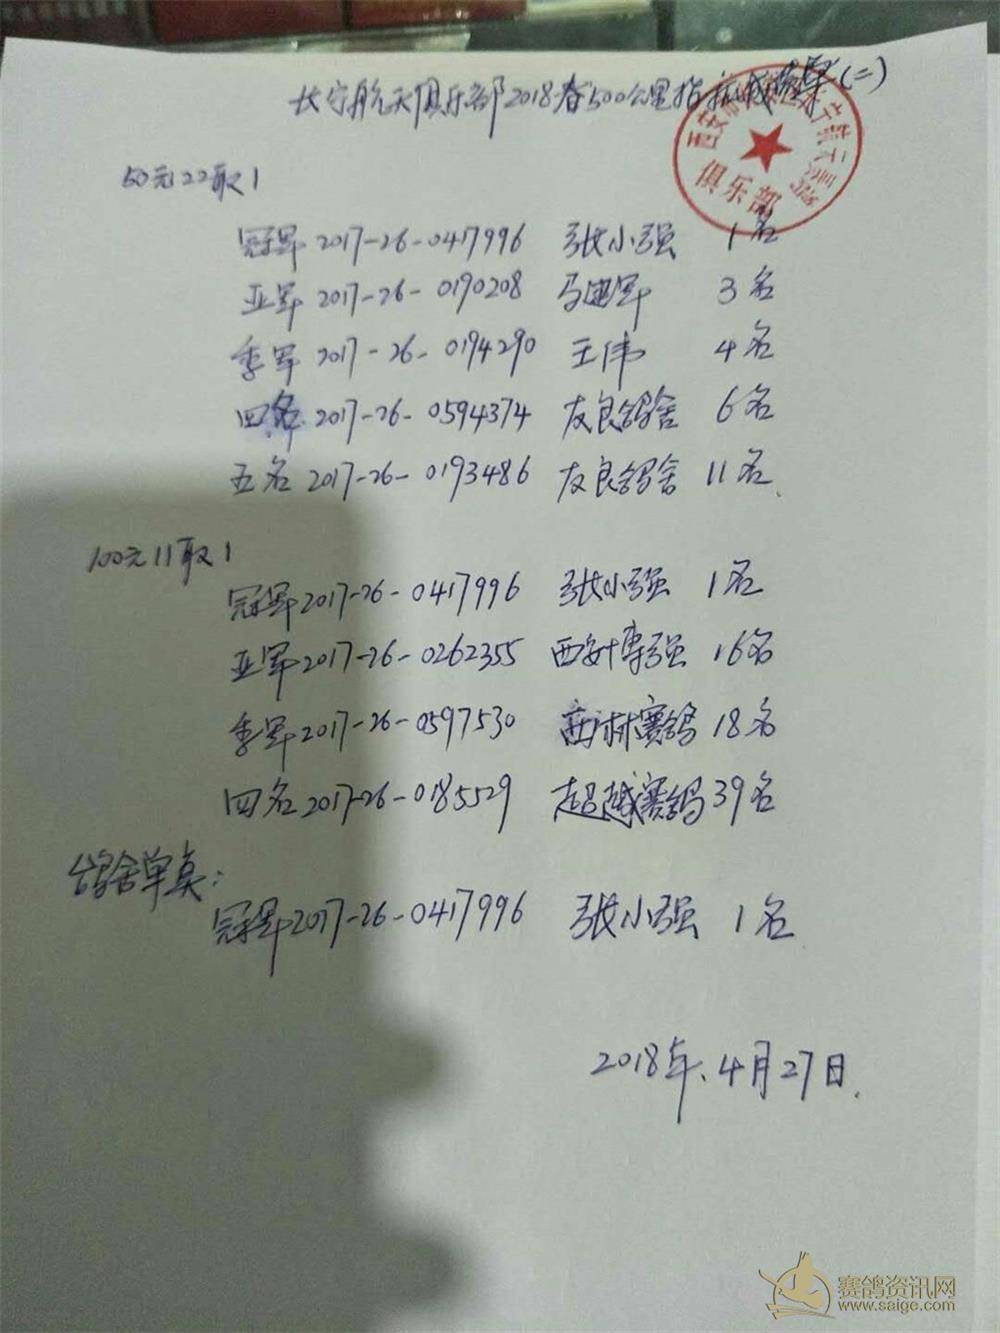 长宁航天俱乐部2018春500公里指 (二)
俱乐部
50元22取1
冠军 2017-26-0417996 张小强 1名
亚军 2017-26-0190208 马建军 3名
季军 2017-26-0194290 王伟 4名
四名 2017-26-0594374 友良鸽舍 6名
五名 2017-26-0193486 友良鸽舍 11名.
100元11取1
冠军2017-26-0417996 张小强 1名
亚军2017-26-0262355 西安博强 16名
季军2017-26-0597530 林赛鸽 18名
四名2017-26-0185529 超越赛鸽 39名
鸽舍单真:
冠军2017-26-0417996 张小强 1名
2018年.4月27日.
赛鸽资讯网
www.saige.com